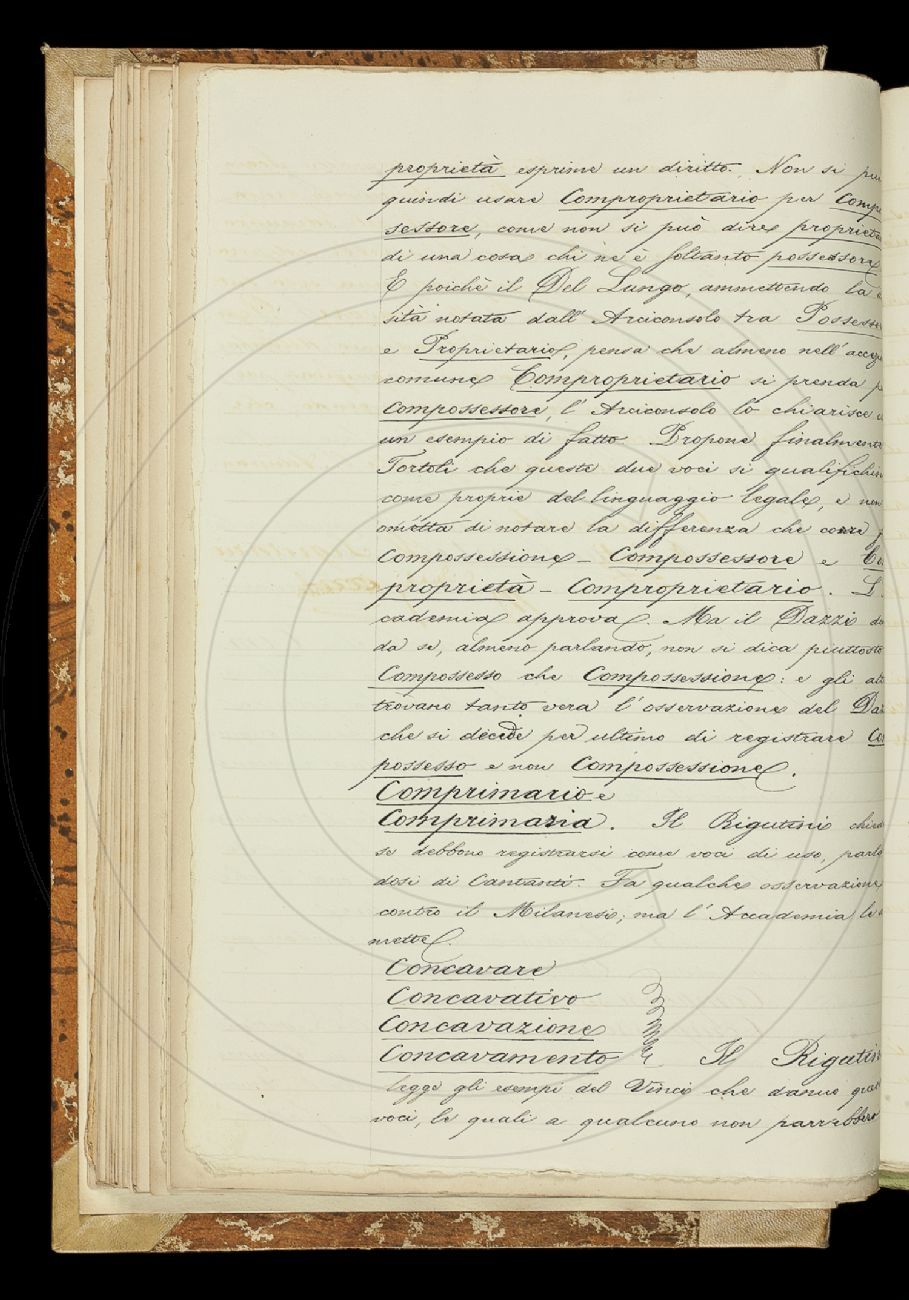 proprietà esprime un diritto. Non si può
quindi usare Comproprietario per Comp
sessore, come non si può dire proprieta
di una cosa chi ne è soltanto possessore
E poichè il Del Lungo, ammettendo la
sità notata dall' Arciconsolo tra Possess
e Proprietario, pensa che almeno nell' acce
comune Comproprietario si prenda p
Compossessore, l' Arciconsolo lo chiarisce
un esempio di fatto. Propone finalment
Tortoli che queste due voci si qualifichin
come proprie del linguaggio legale, e non
ometta di notare la differenza che corre
Compossessione – Compossessore e Co
proprietà – Comproprietario. L'
cademia approva. Ma il Dazzi do
da se, almeno parlando, non si dica piuttosto
Compossesso che Compossessione: e gli alt
trovano tanto vera l' osservazione del Daz
che si decide per ultimo di registrare Co
possesso e non Compossessione.
Comprimario e
Comprimaria. Il Rigutini chied
se debbono registrarsi come voci di uso, parla
dosi di Cantanti. Fa qualche osservazione
contro il Milanesi; ma l' Accademia le
mette.
Concavare
Concavativo
Concavazione
Concavamento Il Rigutin
legge gli esempi del Vinci che danno ques
voci, le quali a qualcuno non parrebbero